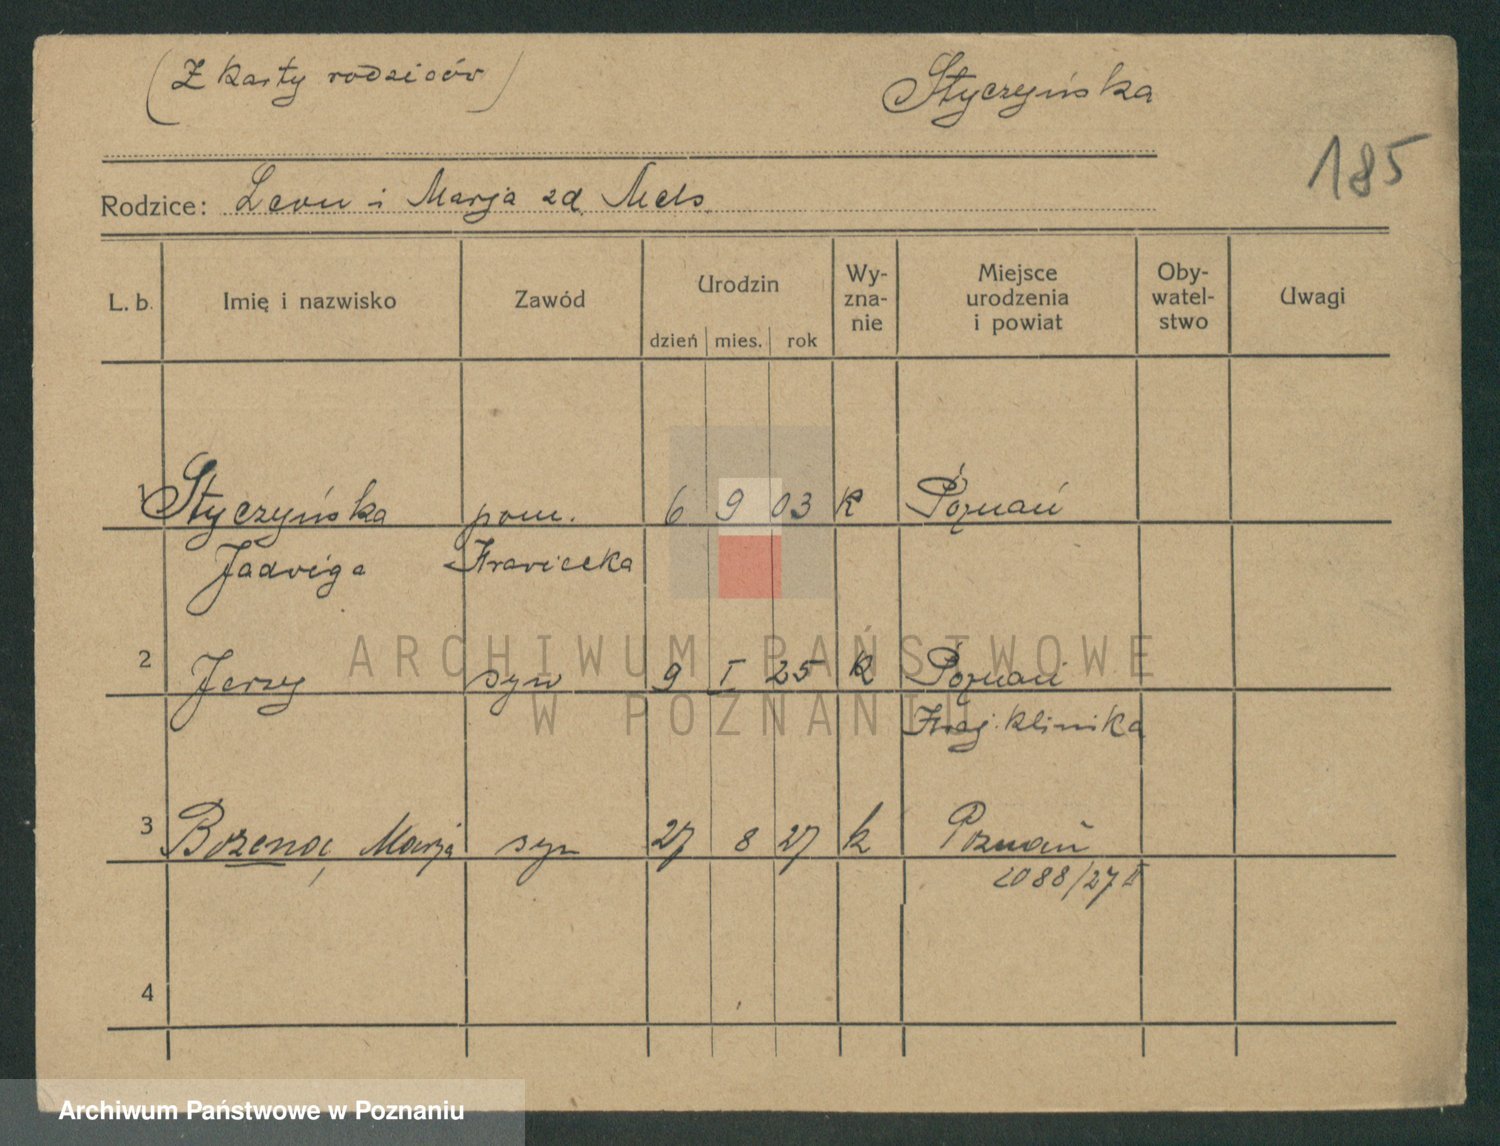 (Z karty rodziców)
Styczyńska
185
Rodzice: Leon i Marja zd. Mels.
L. b. Imię i nazwisko Zawód Urodzin Wy- Miejsce Oby- Uwagi
zna- urodzenia watel-
nie i powiat stwo
dzień mies. rok
1 Styczyńska pom. 6 9 03 k Poznań
Jadwiga Krawiecka
2 Jerzy syn 9 I 25 k Poznań
Kraj. klinika
3 Bozena, Marja syn 27 8 27 k Poznań
2088/27 II
4
ARCHIWUM PAŃSTWOWE
W POZNANIU
Archiwum Państwowe w Poznaniu